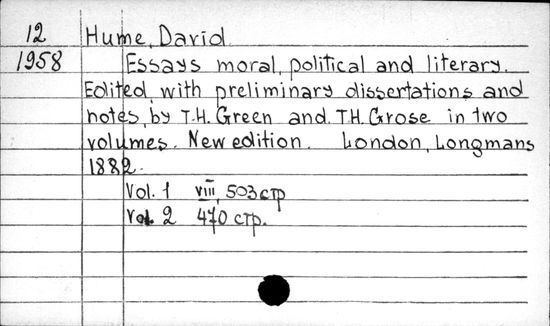 12 Hume, David.
1958 Essays moral, political and literary.
Edited, with preliminary dissertations and
notes, by T.H. Green and T.H. Grose in two
volumes. New edition. London, Longmans
1882.
Vol. 1 VIII, 503 стр
Vol. 2 470 стр.